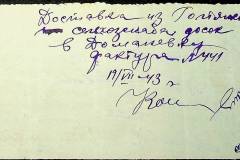 Доставка из Голтянск
сельхозснаба досок
в Доманевку
фактура № 441
19/VII-43 г